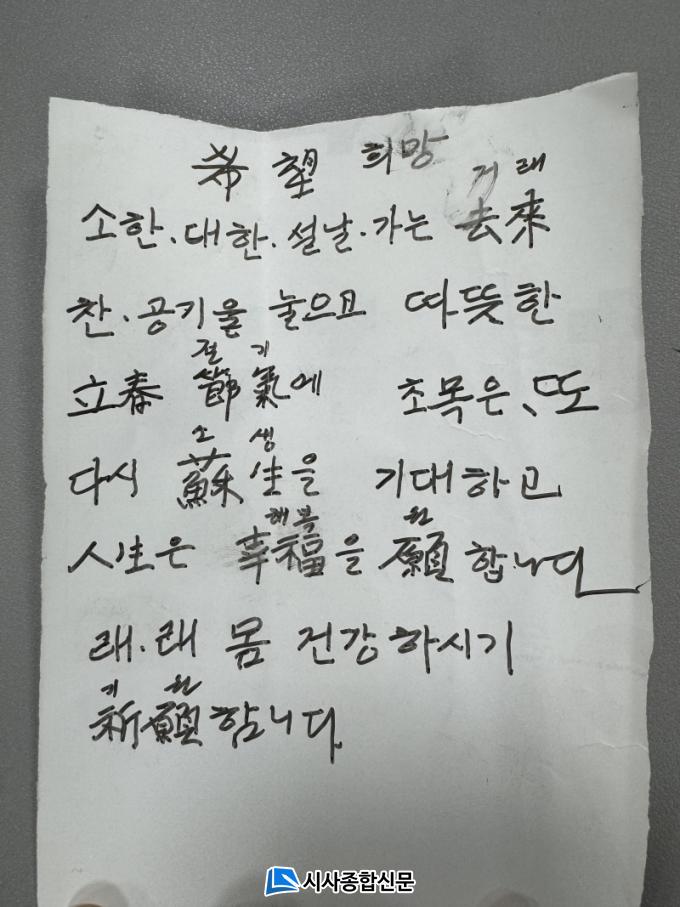 希望 희망
거래
소한.대한.설날.가는 去來
찬.공기을 눌으고 따뜻한
절기
立春 節氣에 초목은、또
소생
다시 蘇生을 기대하고
행복 원
人生은 幸福을 願합니다
래.래 몸 건강하시기
기원
祈願합니다.
시사종합신문